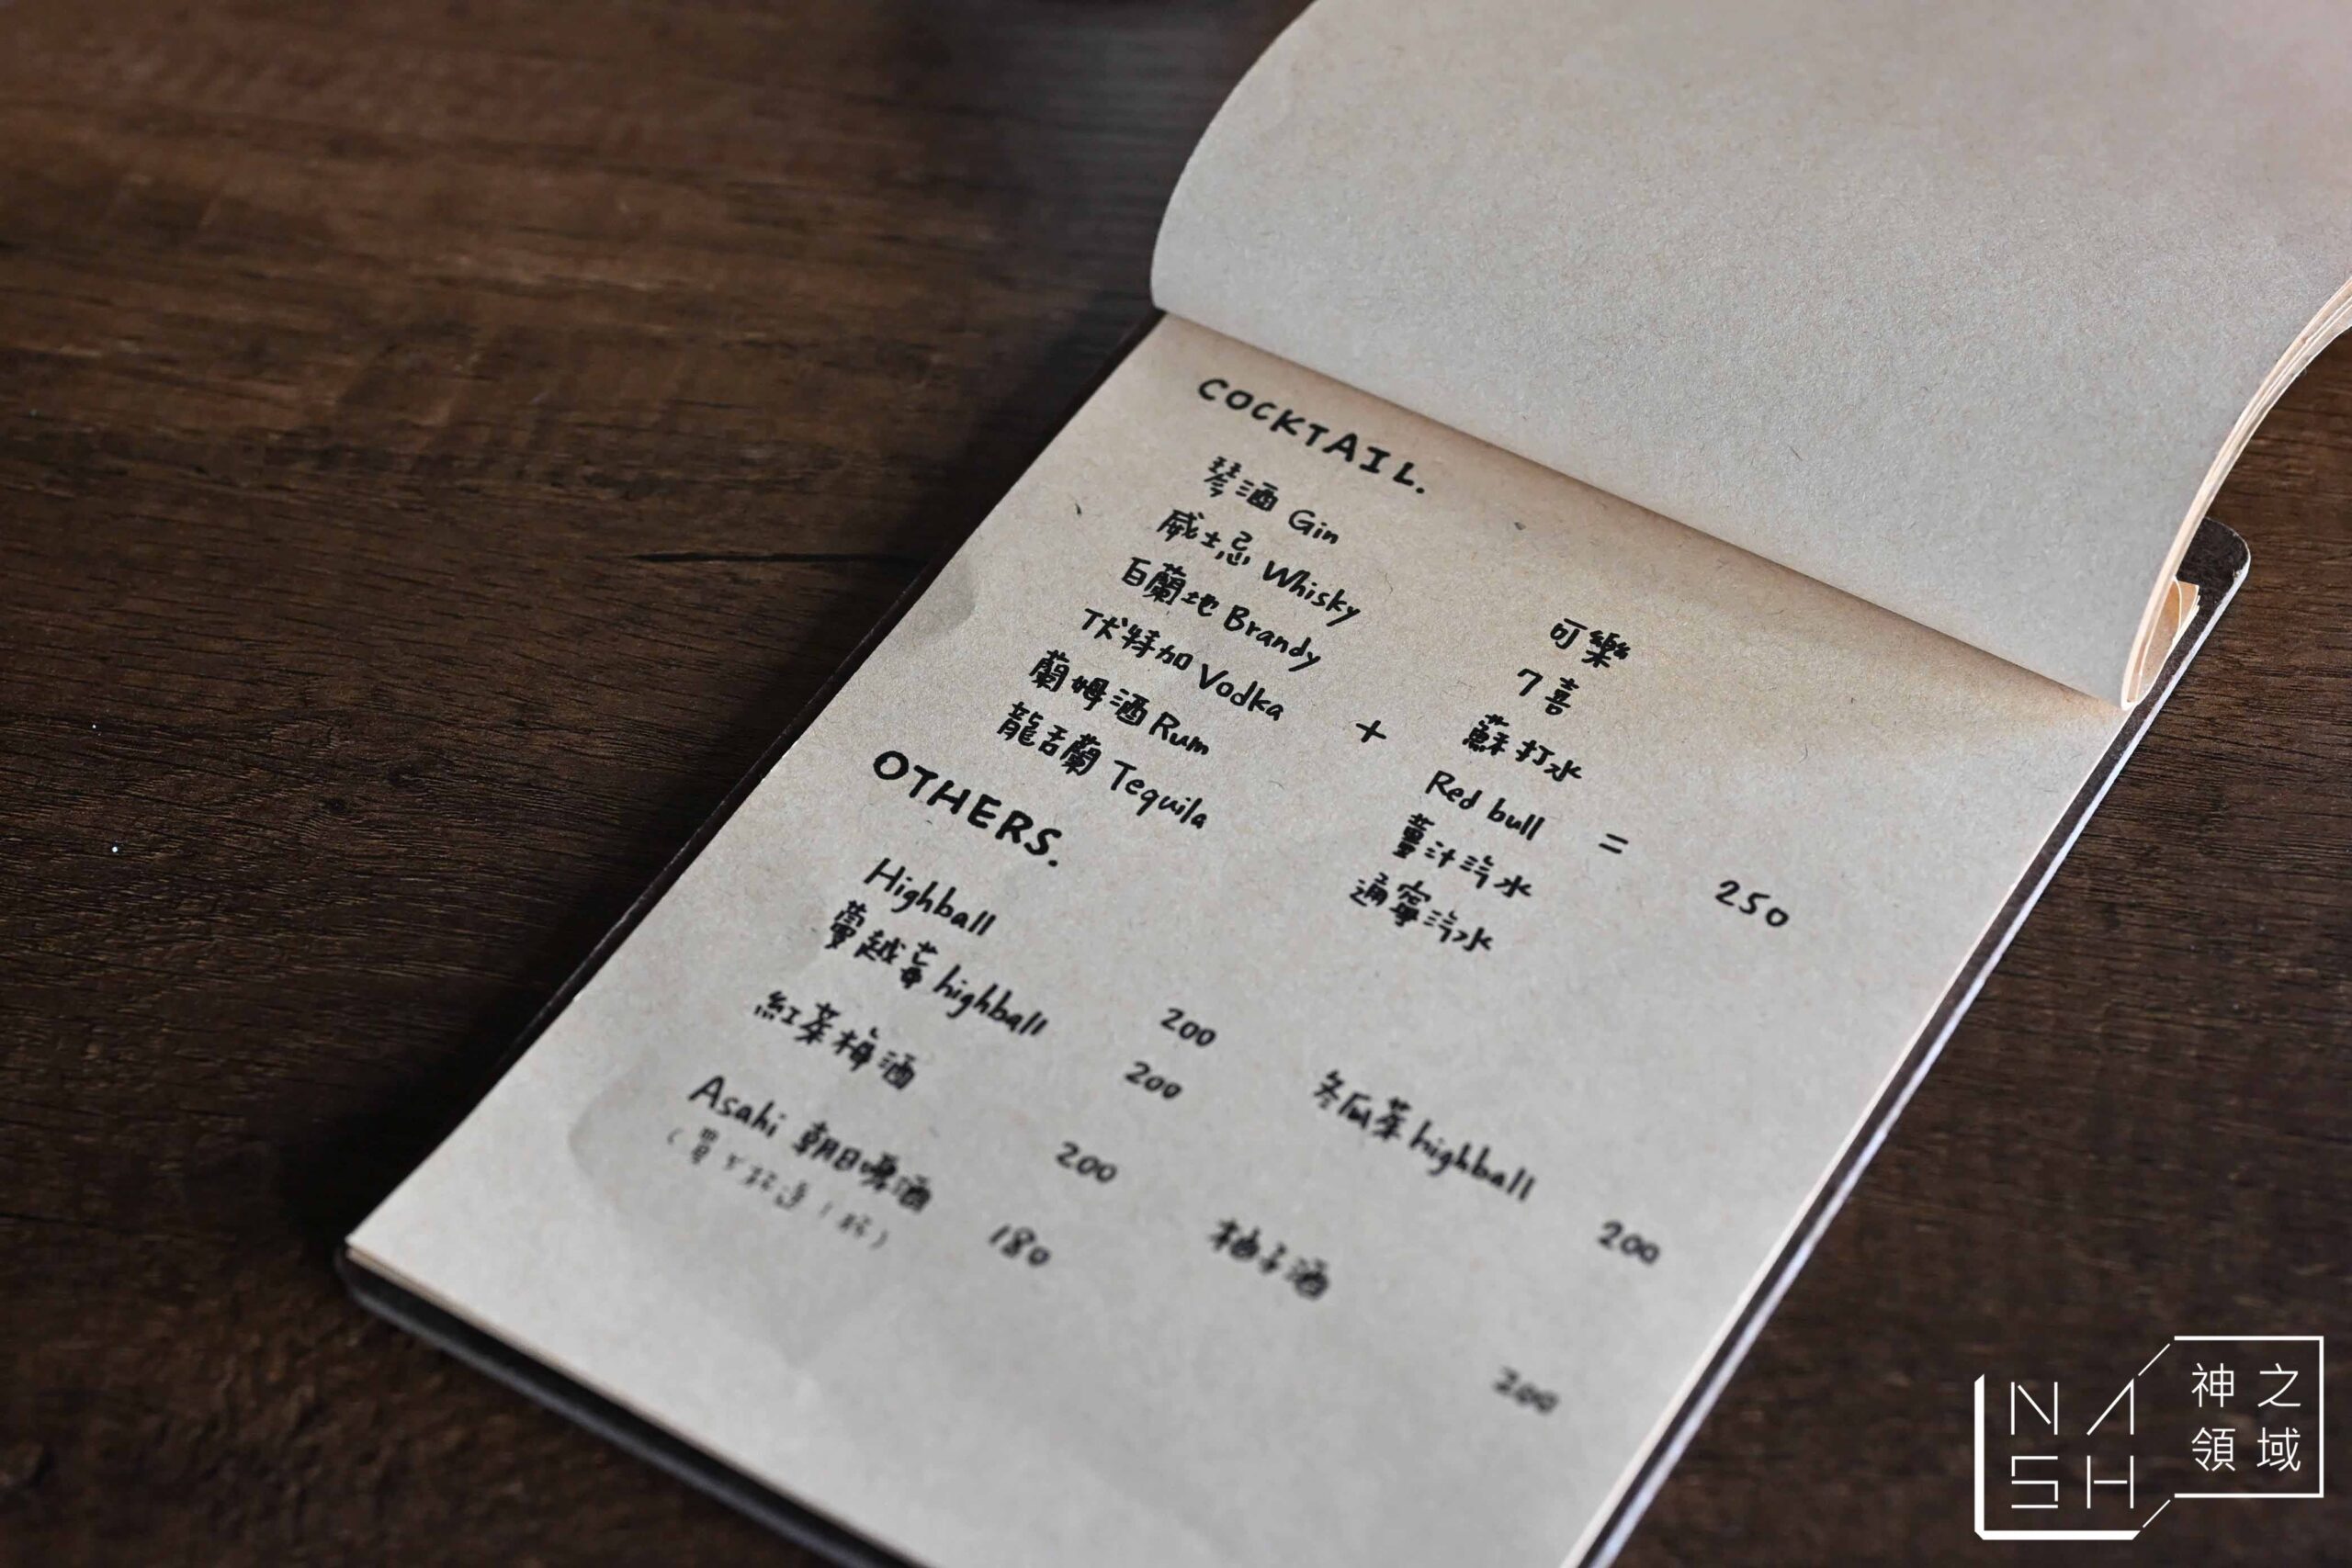 COCKTAIL.
琴酒 Gin
威士忌 Whisky
百蘭地 Brandy
伏特加 Vodka
蘭姆酒 Rum
龍舌蘭 Tequila
+
可樂
7喜
蘇打水
Red bull
薑汁汽水
通寧汽水
=
250
OTHERS.
Highball 200
蔓越莓 highball 200
冬瓜茶 highball 200
紅茶梅酒 200
柚子酒 200
Asahi 朝日啤酒 180
NASH
神之領域